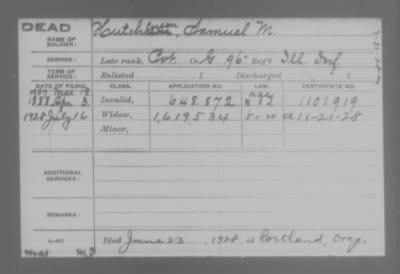 DEAD
NAME OF SOLDIER:
Hutchinson, Samuel M.
SERVICE:
Late rank, Pvt. Co. G 96" Reg't Ill. Inf.
TERM OF SERVICE:
Enlisted , 1 Discharged , 1
DATE OF FILING. CLASS. APPLICATION NO. LAW. CERTIFICATE NO.
1907 Mar 19 age
1888 Apr 3. Invalid, 648.872 1101919
1928 July 16 Widow, 1,619,534 a 11-21-28
Minor,
ADDITIONAL SERVICES:
REMARKS:
Died June 23, 1928, at Portland, Oreg.